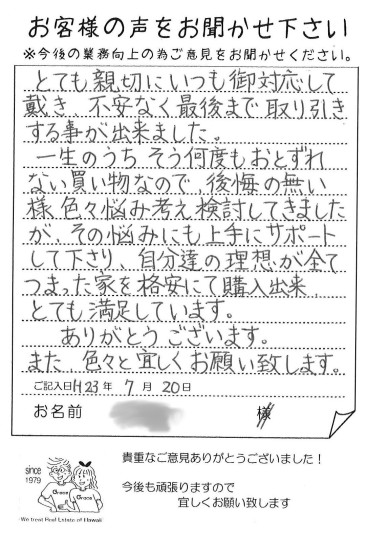 お客様の声をお聞かせ下さい
※今後の業務向上の為ご意見をお聞かせください。
とても親切にいつも御対応して
戴き、不安なく最後まで取り引き
する事が出来ました。
一生のうち そう何度もおとずれ
ない買い物なので、後悔の無い
様、色々悩み考え検討してきました
が、その悩みにも上手にサポート
して下さり、自分達の理想が全て
つまった家を格安にて購入出来、
とても満足しています。
ありがとうございます。
また 色々と宜しくお願い致します。
ご記入日H23年 7月 20日
お名前 様
since
1979
Grace
Grace
We treat Real Estate of Hawaii
貴重なご意見ありがとうございました！
今後も頑張りますので
宜しくお願い致します